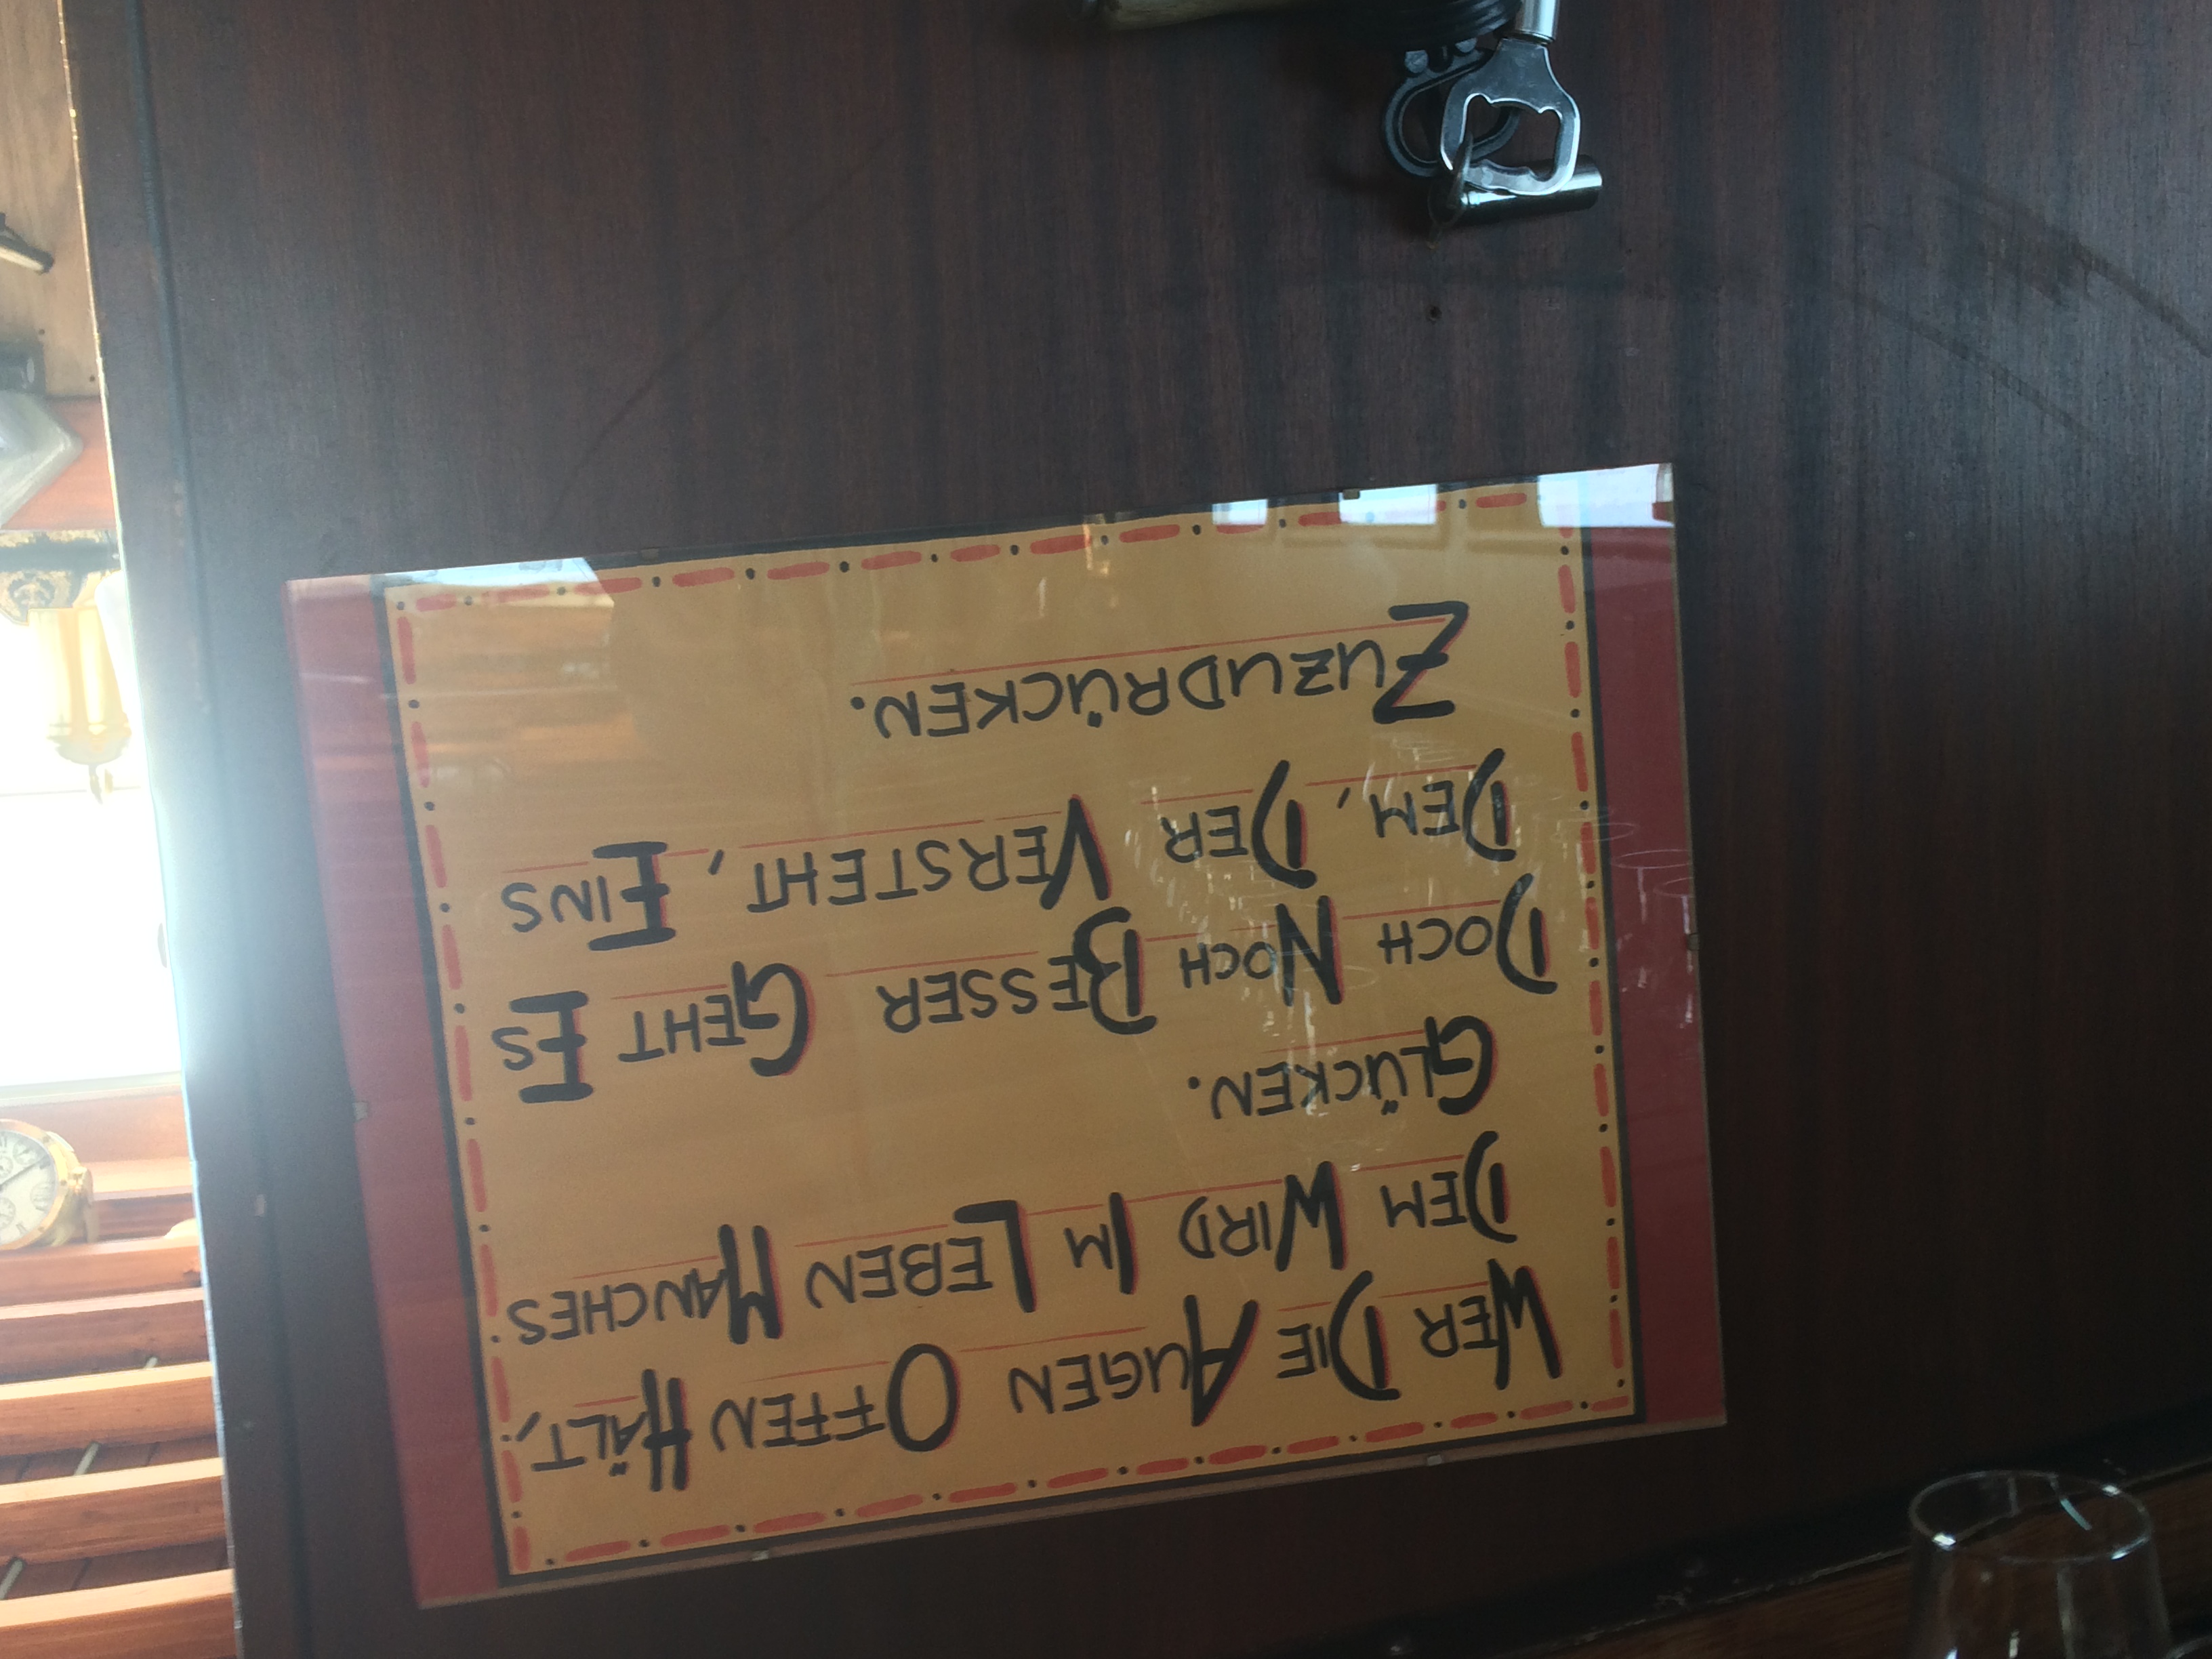 WER DIE AUGEN OFFEN HÄLT,
DEM WIRD IM LEBEN MANCHES
GLÜCKEN.
DOCH NOCH BESSER GEHT ES
DEM, DER VERSTEHT, EINS
ZUZUDRÜCKEN.